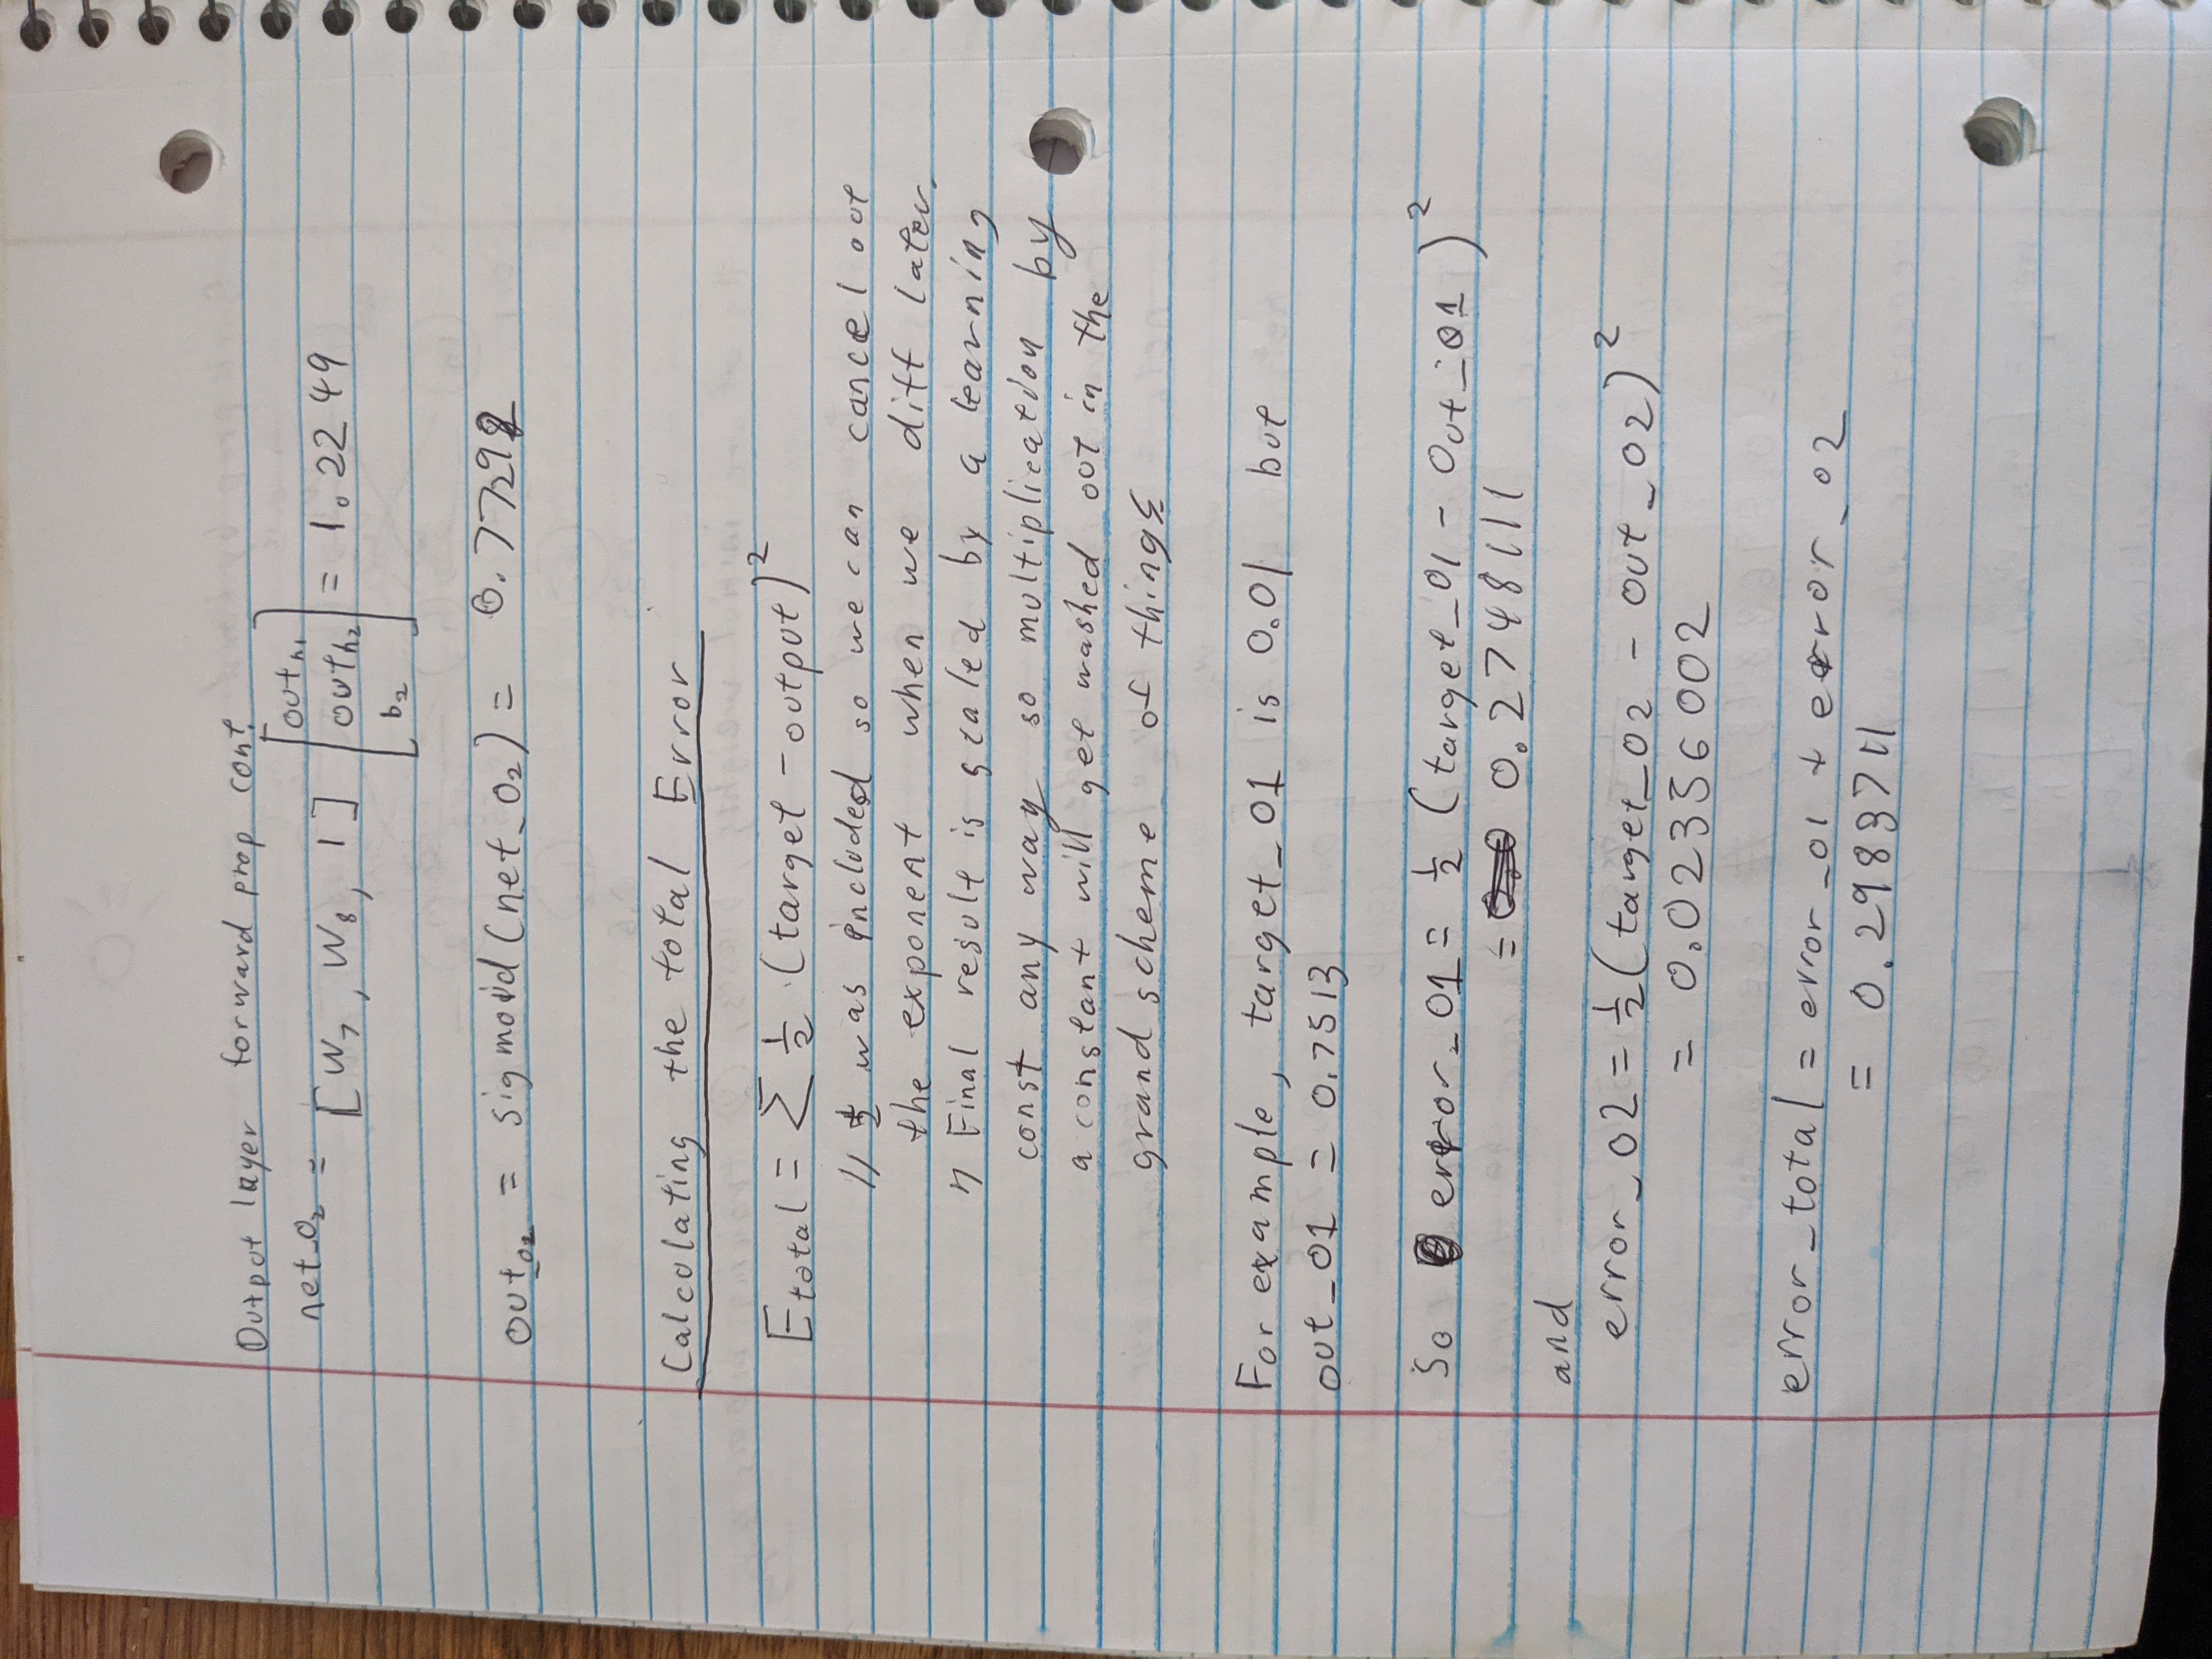 Output layer forward prop cont.
net_O₂ = [W₇, W₈, 1] [out_h1 out_h2 b₂] = 1.2249
out_o2 = sigmoid(net_O₂) = 0.77292
Calculating the total Error
E total = Σ ½ (target - output)²
// ½ was included so we can cancel out
the exponent when we diff later.
// Final result is scaled by a learning
const any way so multiplication by
a constant will get washed out in the
grand scheme of things
For example, target_O1 is 0.01 but
out_O1 = 0.7513
So error_O1 = ½ (target_O1 - Out_O1)²
= 0.2748111
and
error_O2 = ½ (target_O2 - out_O2)²
= 0.02356002
error_total = error_O1 + error_O2
= 0.2983711